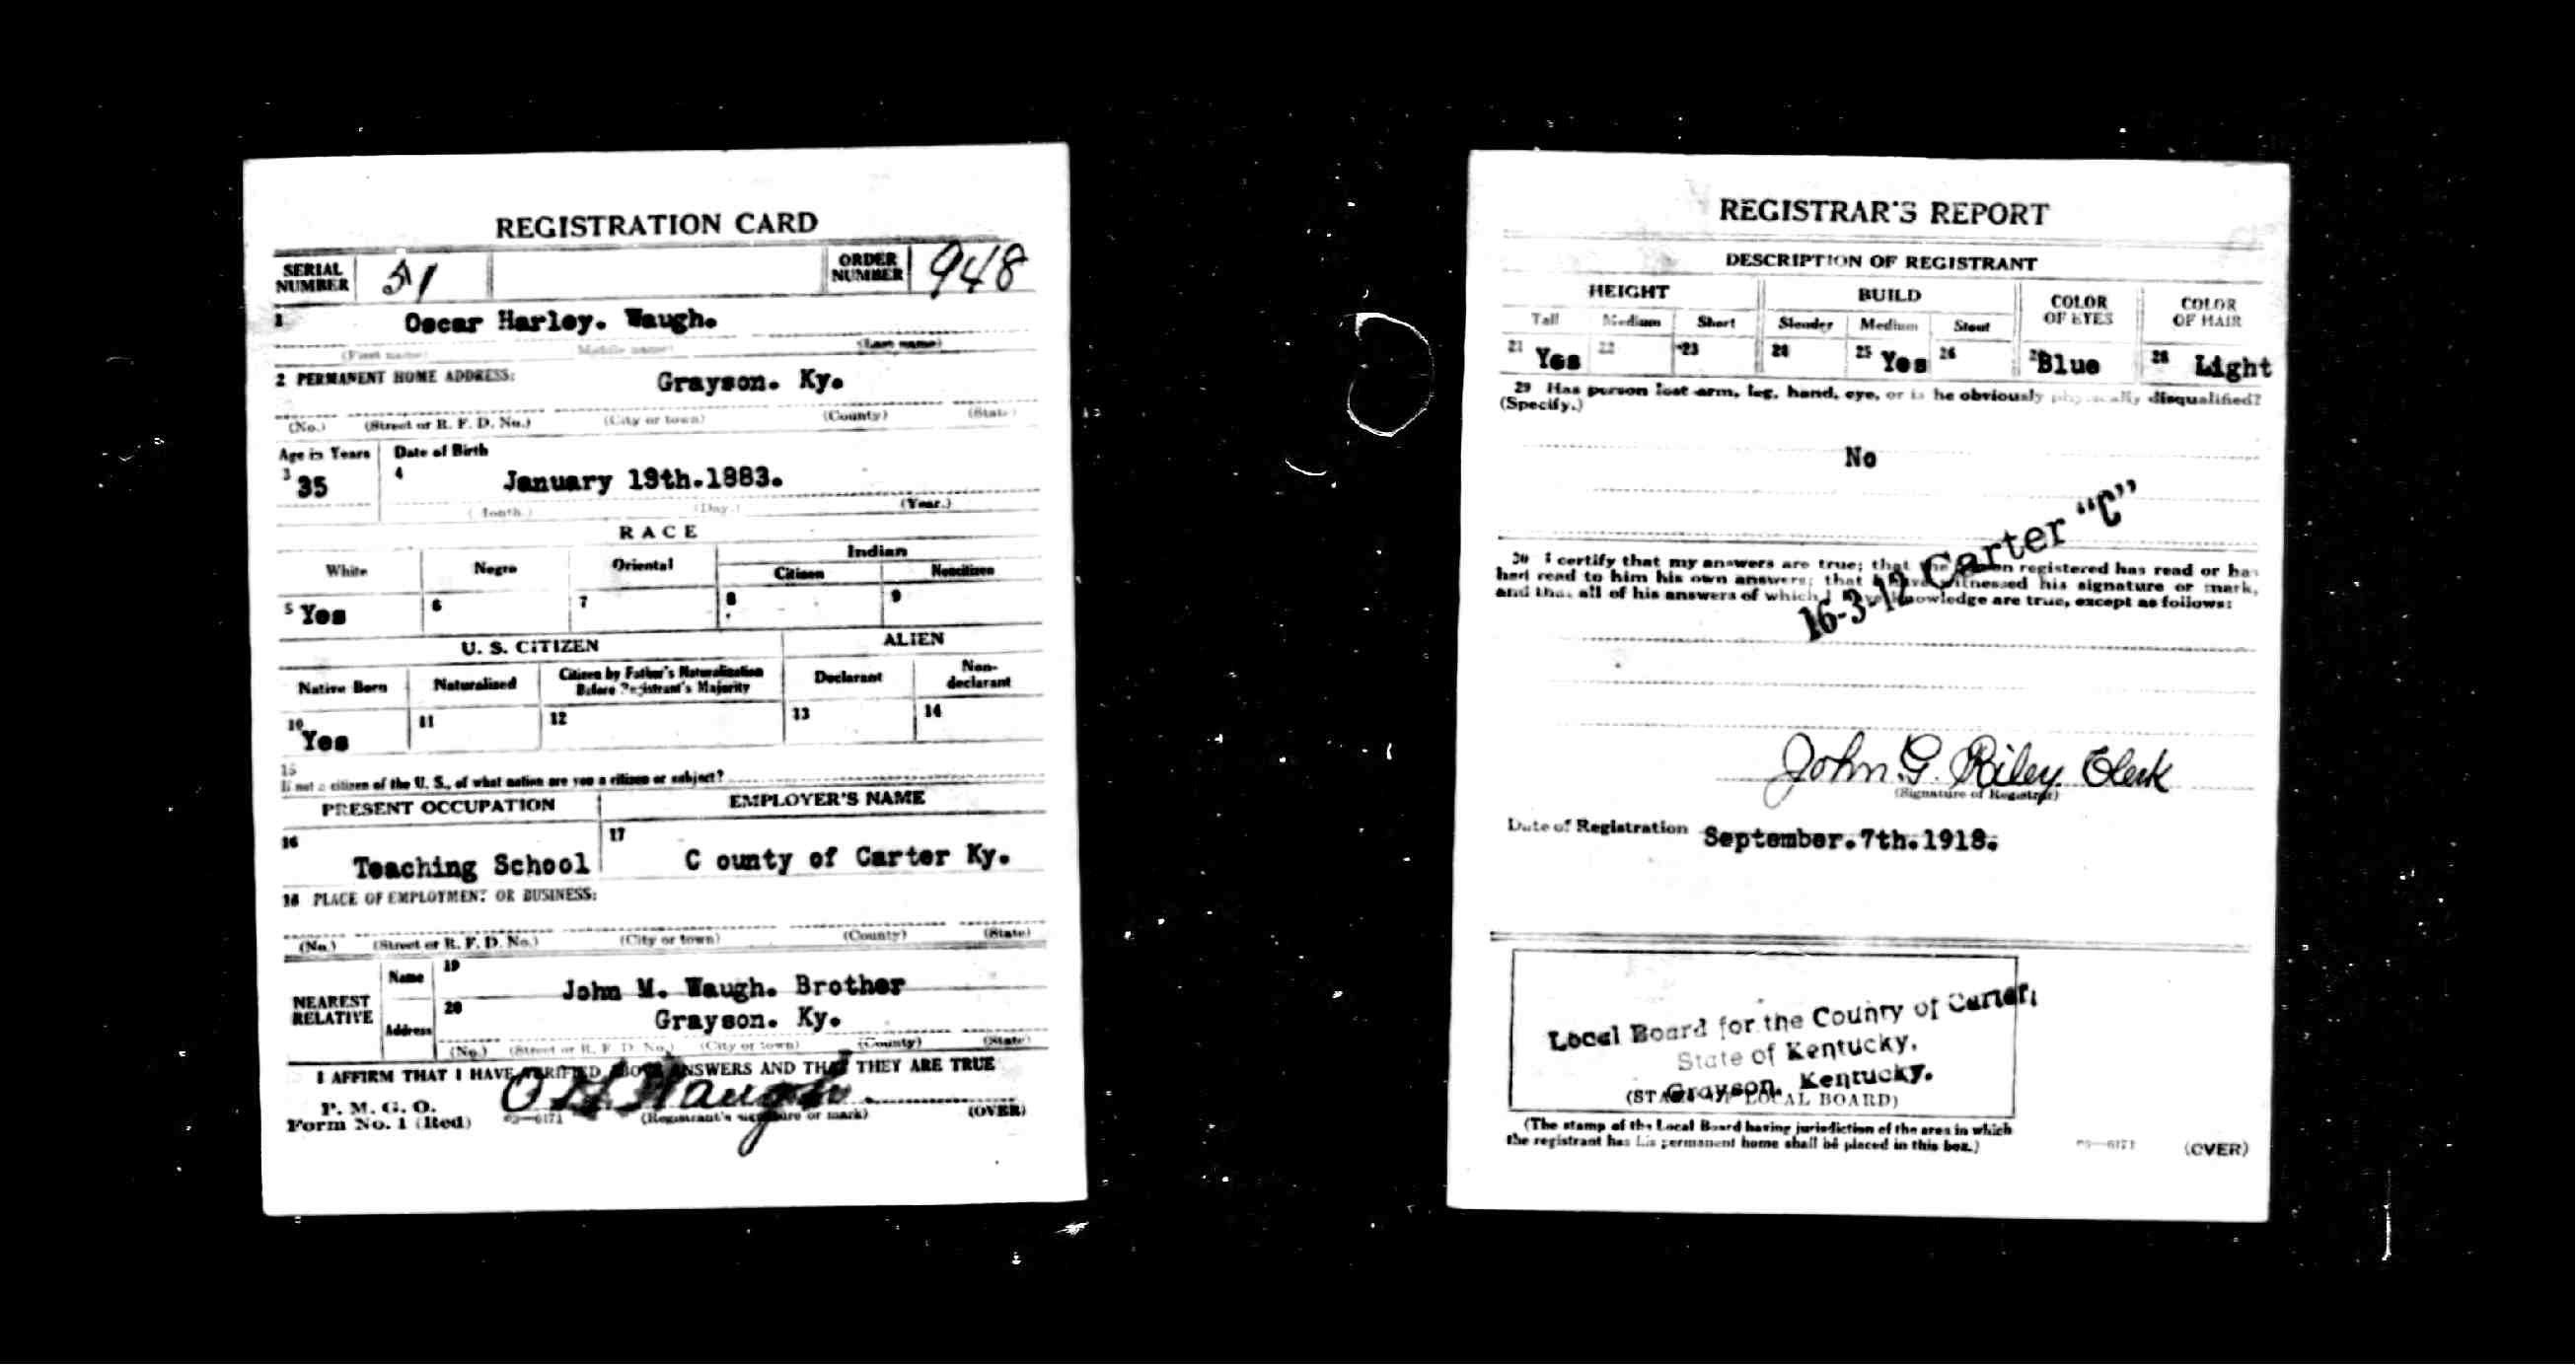 REGISTRATION CARD
SERIAL NUMBER 51 ORDER NUMBER 948
1 Oscar Harley. Waugh.
(First name) (Middle name) (Last name)
2 PERMANENT HOME ADDRESS: Grayson. Ky.
(No.) (Street or R. F. D. No.) (City or town) (County) (State)
Age in Years Date of Birth
3 35 4 January 19th.1883.
(Month.) (Day.) (Year.)
RACE
White Negro Oriental Indian
Citizen Noncitizen
5 Yes 6 7 8 9
U. S. CITIZEN ALIEN
Native Born Naturalized Citizen by Father's Naturalization Before Registrant's Majority Declarant Non-declarant
10 Yes 11 12 13 14
15
If not a citizen of the U. S., of what nation are you a citizen or subject?
PRESENT OCCUPATION EMPLOYER'S NAME
16 Teaching School 17 C ounty of Carter Ky.
18 PLACE OF EMPLOYMENT OR BUSINESS:
(No.) (Street or R. F. D. No.) (City or town) (County) (State)
NEAREST RELATIVE
Name 19 John M. Waugh. Brother
Address 20 Grayson. Ky.
(No.) (Street or R. F. D. No.) (City or town) (County) (State)
I AFFIRM THAT I HAVE VERIFIED ABOVE ANSWERS AND THAT THEY ARE TRUE
P. M. G. O.
Form No. 1 (Red) 03—6171 O H Waugh (Registrant's signature or mark) (OVER)
REGISTRAR'S REPORT
DESCRIPTION OF REGISTRANT
HEIGHT BUILD COLOR OF EYES COLOR OF HAIR
Tall Medium Short Slender Medium Stout
21 Yes 22 23 24 25 Yes 26 27 Blue 28 Light
29 Has person lost arm, leg, hand, eye, or is he obviously physically disqualified?
(Specify.)
No
30 I certify that my answers are true; that the person registered has read or has
had read to him his own answers; that I have witnessed his signature or mark,
and that all of his answers of which I have knowledge are true, except as follows:
16-3-12 Carter "C"
John G. Riley. Clerk
(Signature of Registrar)
Date of Registration September.7th.1918.
Local Board for the County of Carter,
State of Kentucky,
Grayson, Kentucky.
(STAMP OF LOCAL BOARD)
(The stamp of the Local Board having jurisdiction of the area in which
the registrant has his permanent home shall be placed in this box.)
03—6171 (OVER)